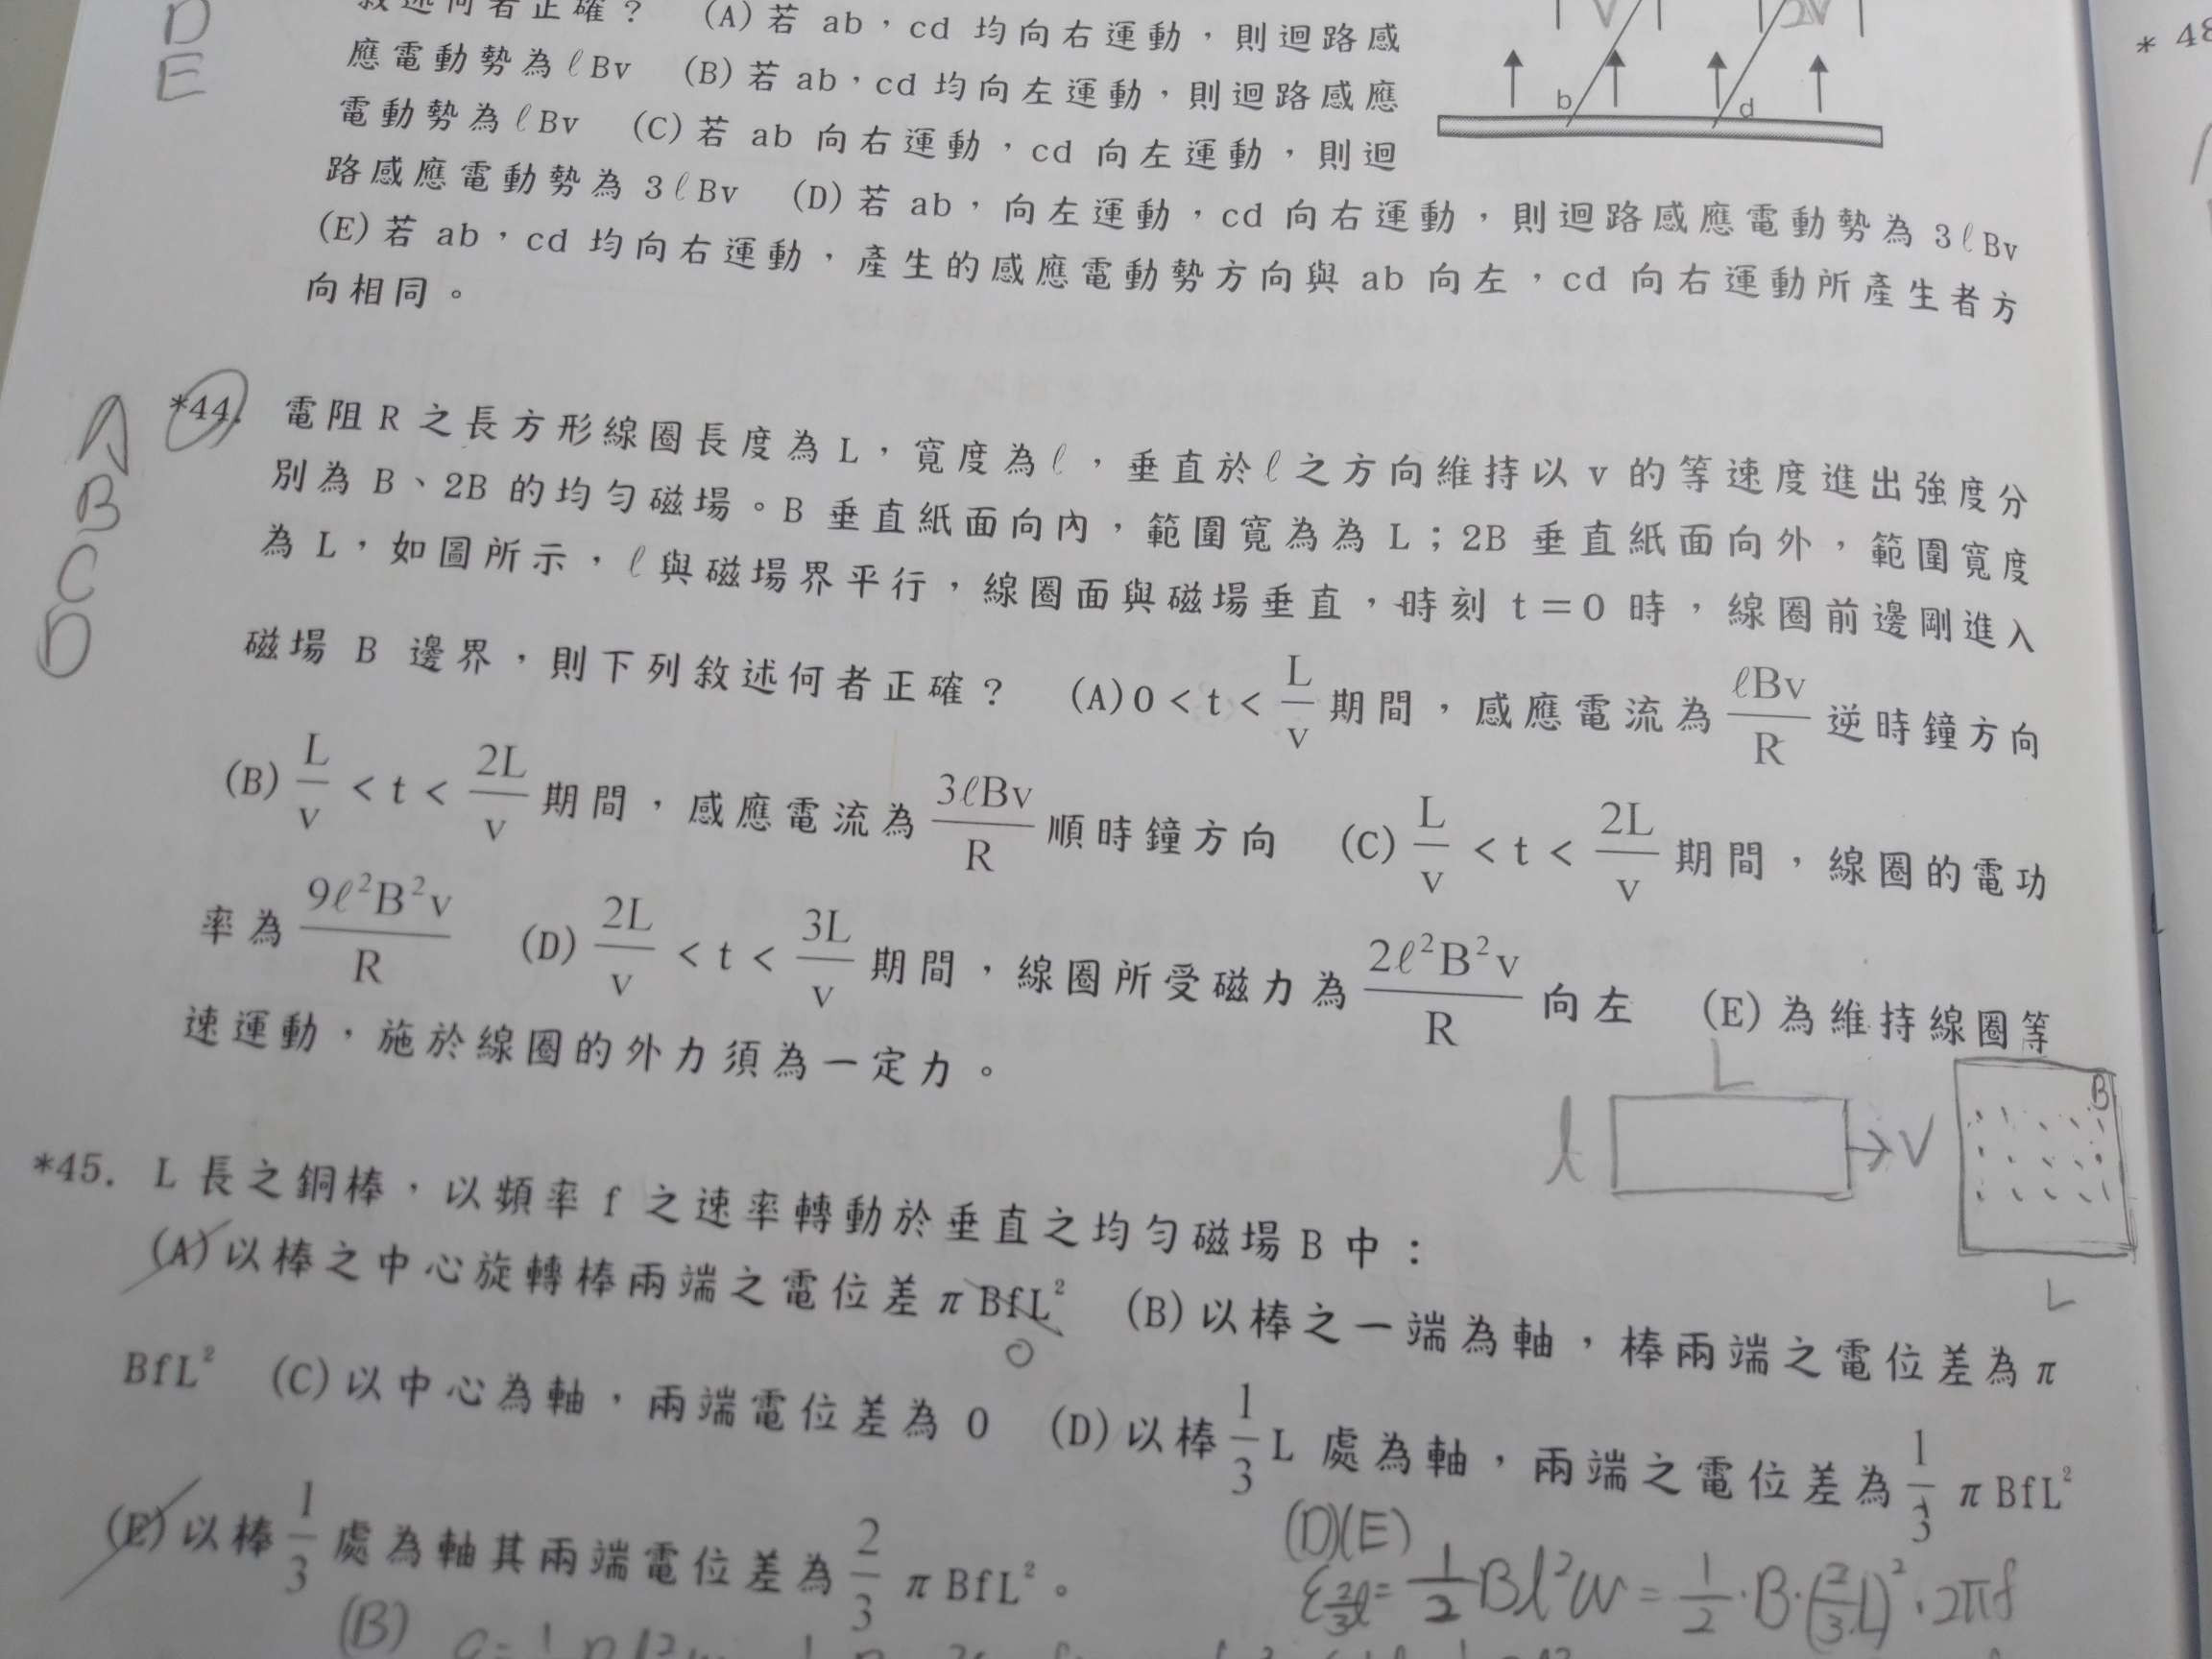 敘述何者正確？ (A)若 ab，cd 均向右運動，則迴路感
應電動勢為ℓBv (B)若 ab，cd 均向左運動，則迴路感應
電動勢為ℓBv (C)若 ab 向右運動，cd 向左運動，則迴
路感應電動勢為 3ℓBv (D)若 ab，向左運動，cd 向右運動，則迴路感應電動勢為 3ℓBv
(E)若 ab，cd 均向右運動，產生的感應電動勢方向與 ab 向左，cd 向右運動所產生者方
向相同。
D
E
V
2V
b
d
* 48
A
B
C
D
*44. 電阻 R 之長方形線圈長度為 L，寬度為ℓ，垂直於ℓ之方向維持以 v 的等速度進出強度分
別為 B、2B 的均勻磁場。B 垂直紙面向內，範圍寬為為 L；2B 垂直紙面向外，範圍寬度
為 L，如圖所示，ℓ與磁場界平行，線圈面與磁場垂直，時刻 t＝0 時，線圈前邊剛進入
磁場 B 邊界，則下列敘述何者正確？ (A)0＜t＜L/v期間，感應電流為ℓBv/R逆時鐘方向
(B)L/v＜t＜2L/v期間，感應電流為3ℓBv/R順時鐘方向 (C)L/v＜t＜2L/v期間，線圈的電功
率為9ℓ²B²v/R (D)2L/v＜t＜3L/v期間，線圈所受磁力為2ℓ²B²v/R向左 (E)為維持線圈等
速運動，施於線圈的外力須為一定力。
L
ℓ
→V
B
L
*45. L 長之銅棒，以頻率 f 之速率轉動於垂直之均勻磁場 B 中：
(A)以棒之中心旋轉棒兩端之電位差πBfL² (B)以棒之一端為軸，棒兩端之電位差為π
0
BfL² (C)以中心為軸，兩端電位差為 0 (D)以棒1/3L 處為軸，兩端之電位差為1/3πBfL²
(E)以棒1/3處為軸其兩端電位差為2/3πBfL²。
(D)(E)
ε⅔ℓ=1/2Bℓ²w=1/2·B·(2/3L)²·2πf
(B)